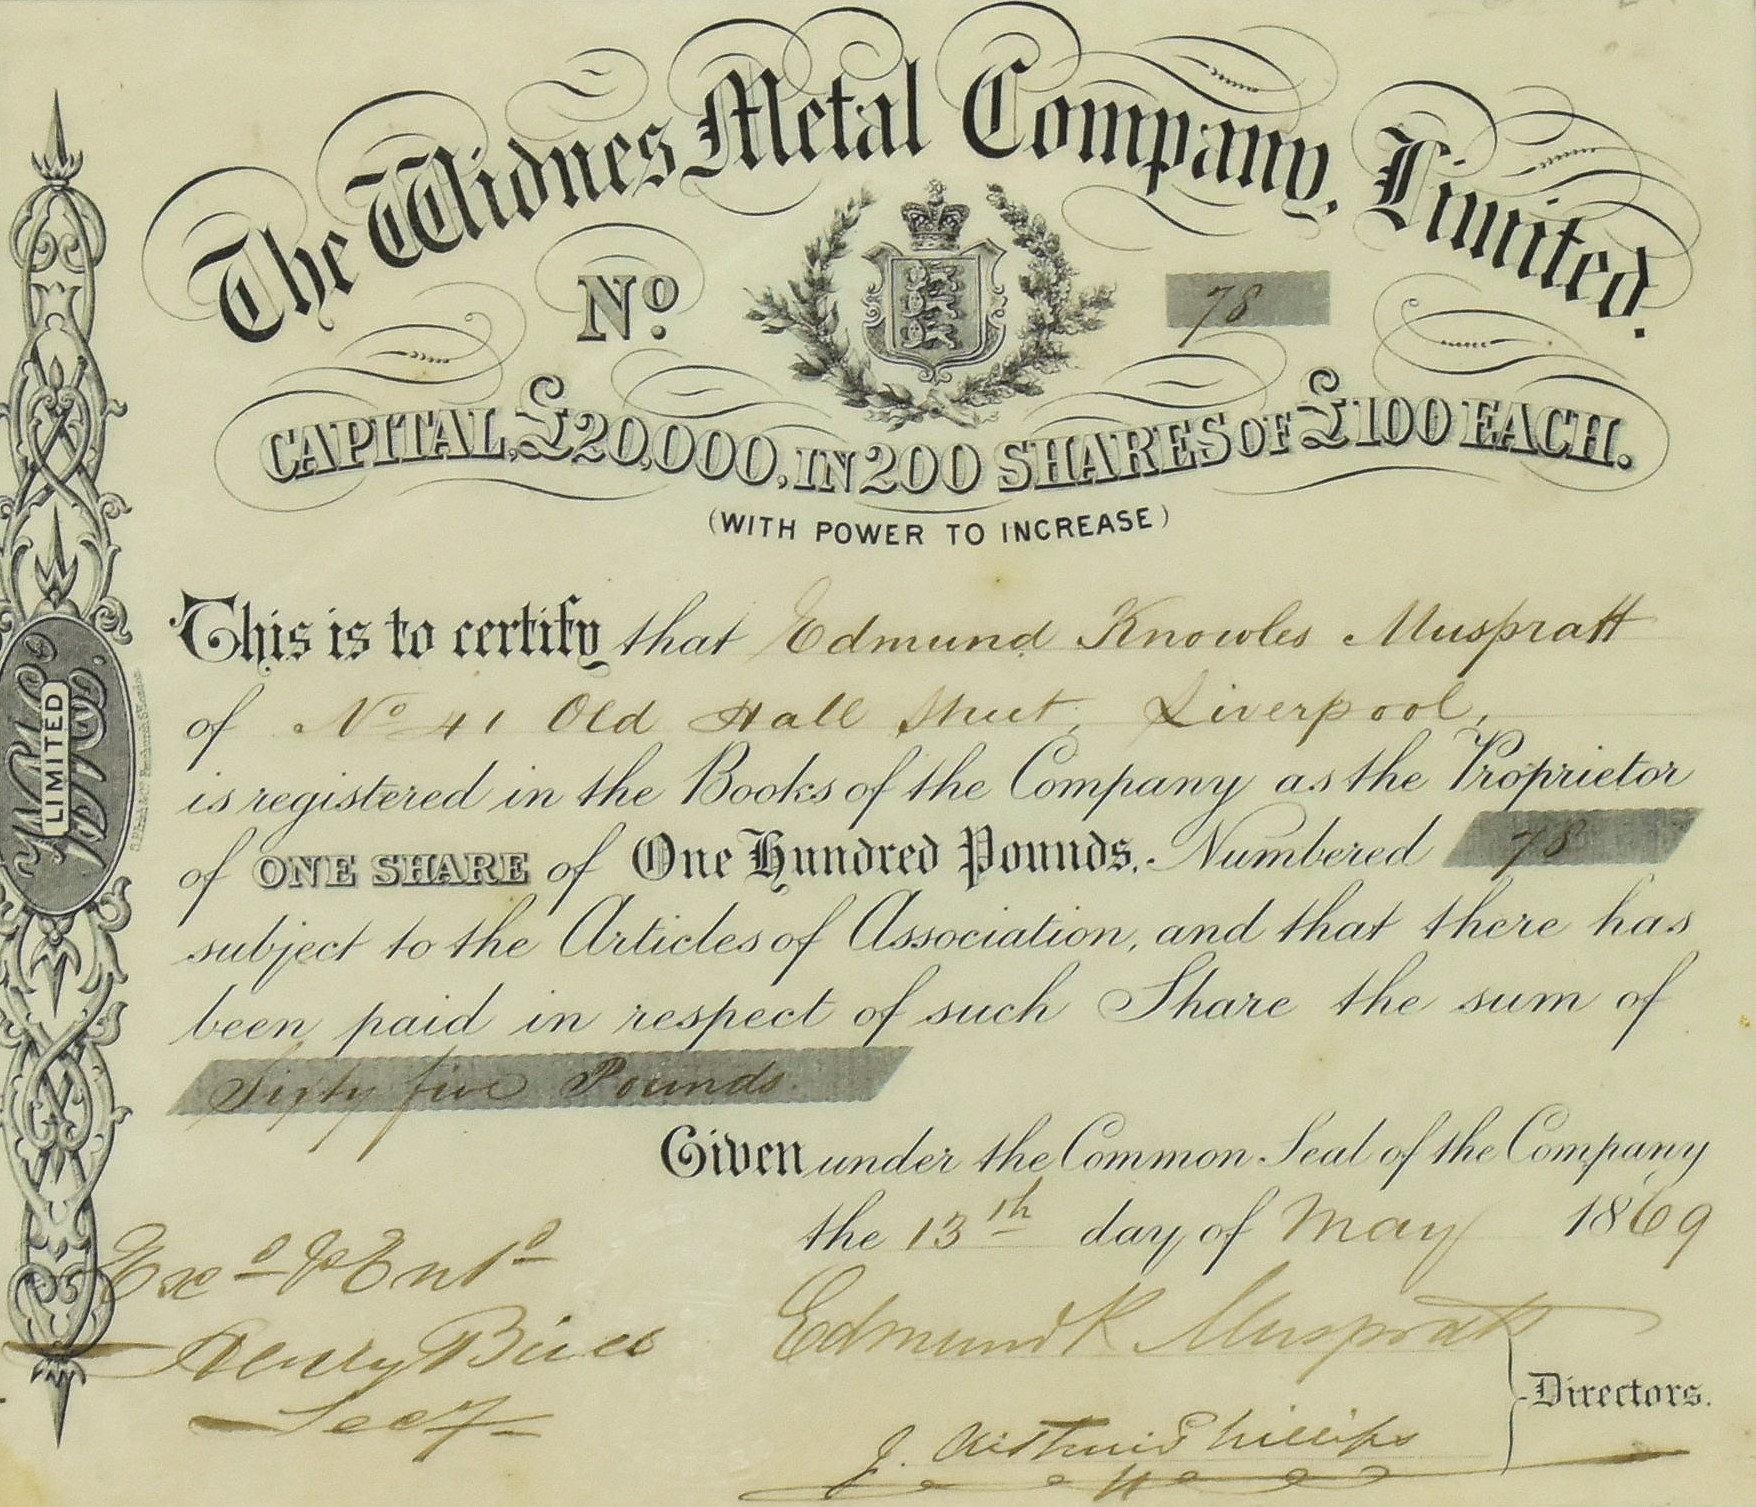 The Widnes Metal Company, Limited.
No. 78
CAPITAL, £20,000, IN 200 SHARES OF £100 EACH.
(WITH POWER TO INCREASE)
This is to certify that Edmund Knowles Muspratt
of No 41 Old Hall Street, Liverpool,
is registered in the Books of the Company as the Proprietor
of ONE SHARE of One Hundred Pounds, Numbered 78
subject to the Articles of Association, and that there has
been paid in respect of such Share the sum of
Sixty five Pounds.
Given under the Common Seal of the Company
the 13th day of May 1869
Exd & Entd
Henry
Secy
Edmund K Muspratt
J. Arthur Phillips
Directors.
LIMITED